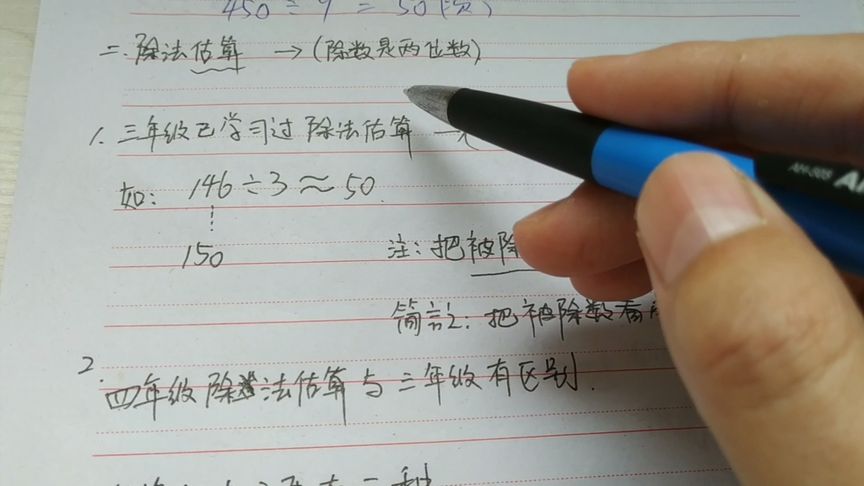 450÷9=50(次)
二.除法估算→(除数是两位数)
1.三年级已学习过除法估算→
如：146÷3≈50.
150
注：把被除
简言之：把被除数看
2.四年级除法估算与三年级有区别.
AH-505